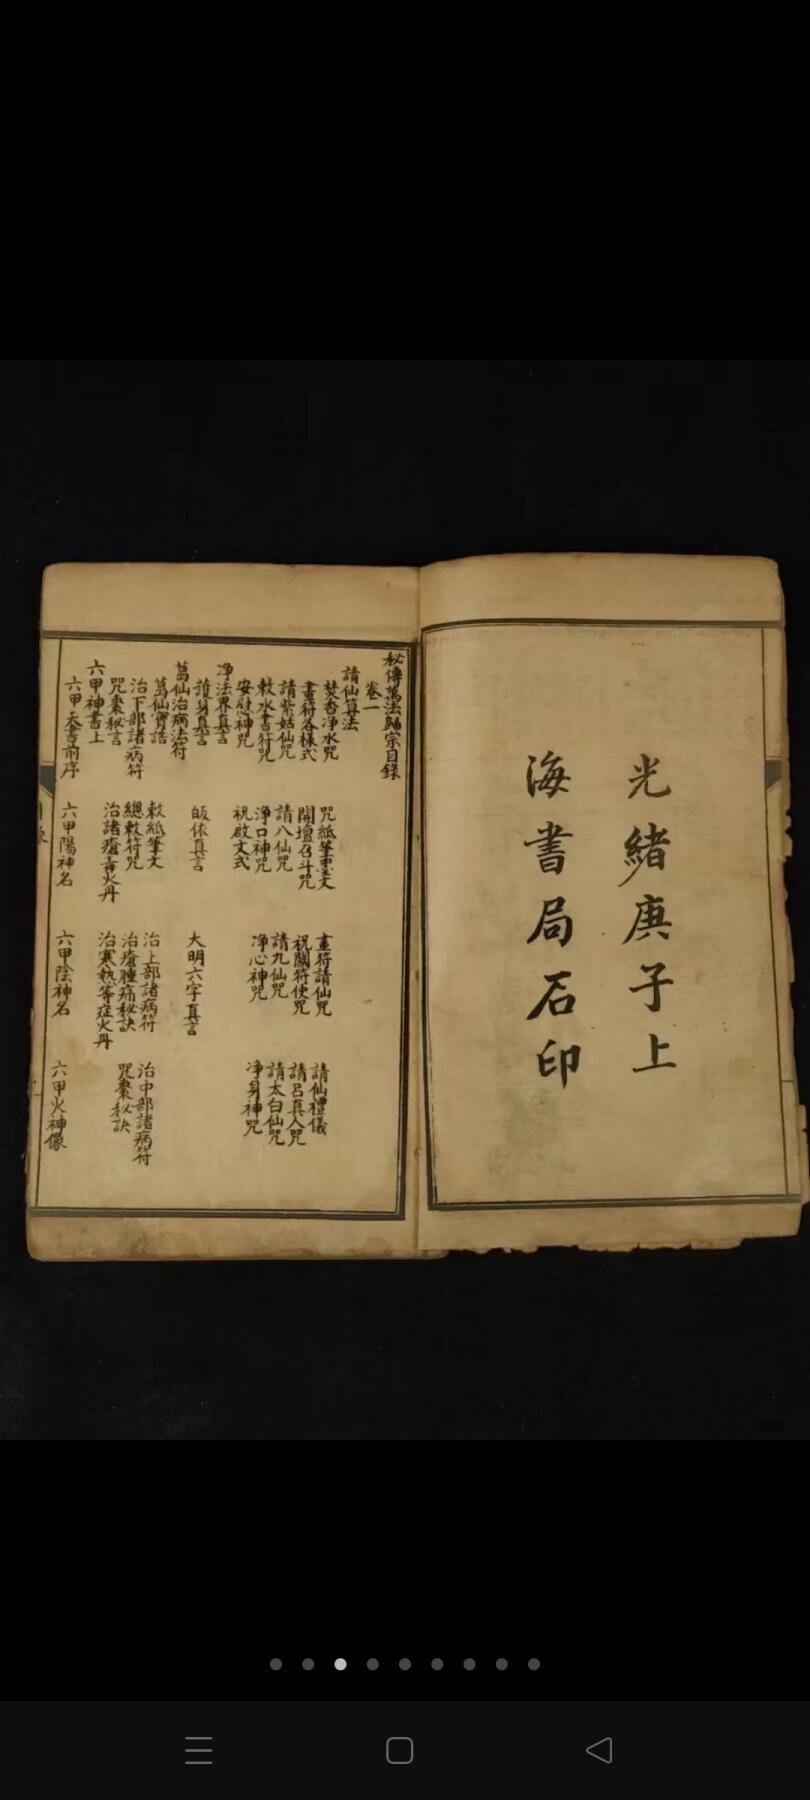 光緒庚子上
海書局石印
秘傳萬法歸宗目錄
卷一
請仙箕法
焚香净水咒 咒紙筆墨文 畫符請仙咒 請仙禮儀
畫符各樣式 開壇召斗咒 祝關符使咒 請呂真人咒
請紫姑仙咒 請八仙咒 請九仙咒 請太白仙咒
敕水書符咒 淨口神咒 净心神咒 凈身神咒
安慰神咒 祝啟文式
净法界真言
護身真言 皈依真言 大明六字真言
葛仙治病法符
葛仙寶誥 敕紙筆文 治上部諸病符 治中部諸病符
治下部諸病符 總敕符咒 治瘡腫痛秘訣 咒棗秘訣
咒棗秘言 治諸瘡毒火丹 治寒熱等症火丹
六甲神書上
六甲天書前序 六甲陽神名 六甲陰神名 六甲火神像